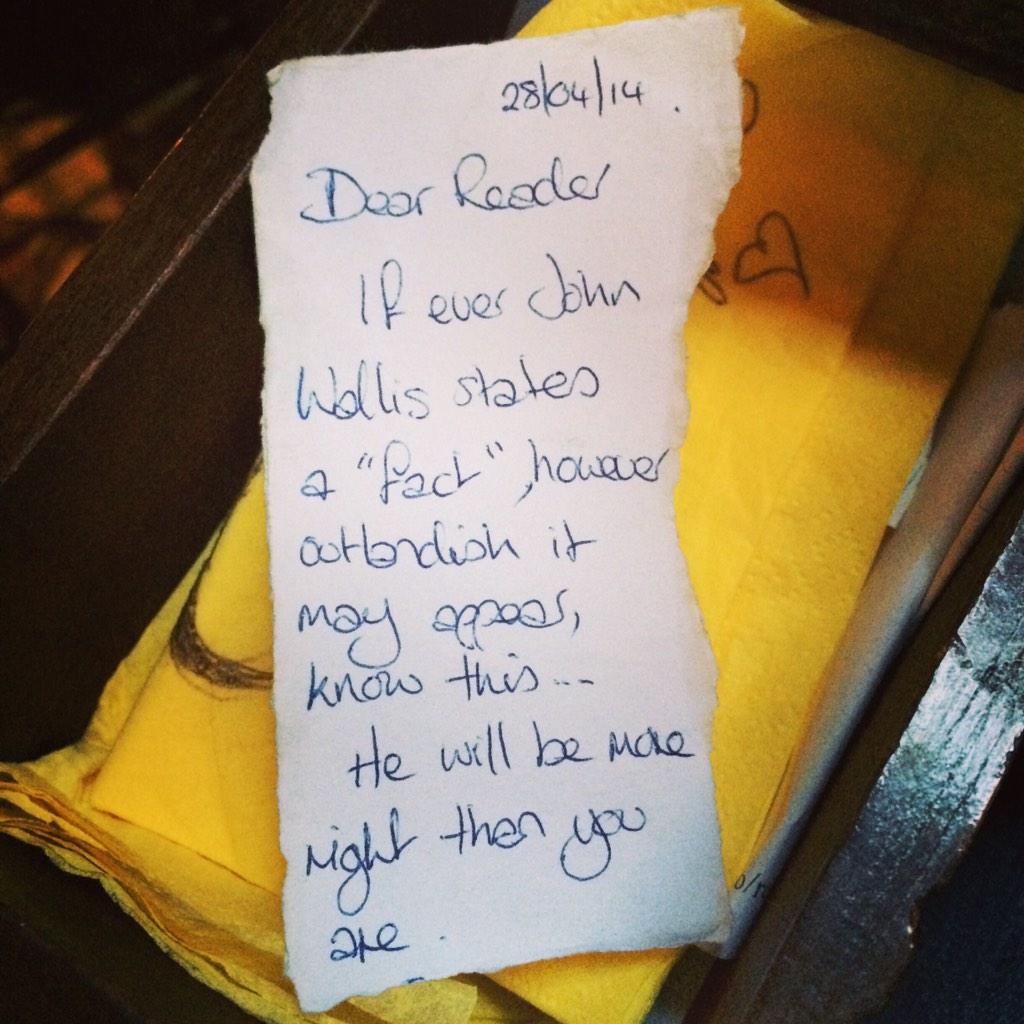 28/04/14.
Dear Reader
If ever John
Wallis states
a "fact", however
outlandish it
may appear,
know this...
He will be more
right than you
are.